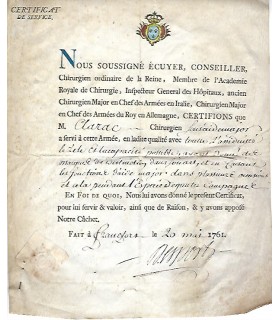 CERTIFICAT
DE SERVICE.
NOUS SOUSSIGNÉ ECUYER, CONSEILLER,
Chirurgien ordinaire de la Reine, Membre de l'Academie
Royale de Chirurgie, Inspecteur General des Hôpitaux, ancien
Chirurgien Major en Chef des Armées en Italie, Chirurgien Major
en Chef des Armées du Roy en Allemagne, CERTIFIONS que
M. Clarac Chirurgien aidemajor
a servi à cette Armée, en ladite qualité avec toute l'assiduité
le zele et la capacité
les fonctions d'aide major dans plusieurs
et cela pendant l'Espace de quatre Campagnes
EN FOI DE QUOI, Nous lui avons donné le présent Certificat,
pour lui servir & valoir, ainsi que de Raison, & y avons apposé
Notre Cachet.
FAIT à Francfort le 20 mai 1761.